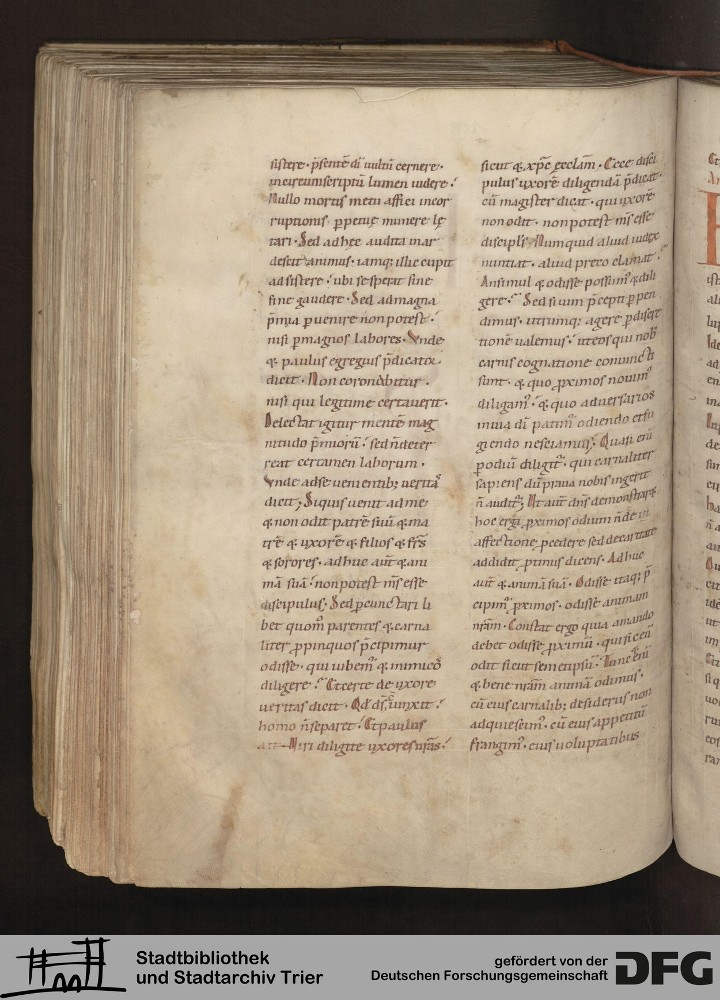 sistere · p̄sentē dī uultū cernere ·
incircumscriptū lumen uidere ·
Nullo mortis metu affici incor
ruptionis ꝑpetuę munere lę
tari · Sed ad hęc audita inar
descit animus · iamq; illic cupit
adsistere · ubi se sperat sine
fine gaudere · Sed ad magna
p̄mia ꝑuenire non potest ·
nisi ꝑ magnos labores · Vnde
& paulus egregius p̄dicator
dicit · Non coronabitur ·
nisi qui legitime certauerit ·
Delectat igitur mentē mag
nitudo p̄miorū · sed n̄ deter
reat certamen laborum ·
Vnde ad se uenientib; ueritas
dicit; Si quis uenit ad me
& non odit patrē suū & ma
trē & uxorē & filios & frs̄
& sorores · adhuc aut̄ & ani
mā suā · non potest ms̄ esse
discipulus · Sed ꝑcunctari li
bet quom̊ parentes & carna
liter ꝓpinquos p̄cipimur
odisse · qui iubem᷒ & inimicos
diligere · Et certe de uxore
ueritas dicit · Qd̄ ds̄ iunxit ·
homo n̄ separet · Et paulus
ait · Viri diligite uxores urās ·
sicut & xp̄c ęcclām · Ecce disci
pulus uxorē diligendā p̄dicat ·
cū magister dicat · qui uxorē
non odit · non potest ms̄ esse
discipls̄ · Numquid aliud iudex
nuntiat · aliud preco clamat ·
An simul & odisse possum᷒ & dili
gere · Sed si uim p̄cepti ꝑpen
dimus · utrumq; agere ꝑ discre
tionē ualemus · ut eos qui nob̄
carnis cognatione coniuncti
sunt · & quo ꝓximos nouim᷒
diligam᷒ · & quo aduersarios
in uia dī patim᷒ odiendo et fu
giendo nesciamus; Quasi eni
ꝑ odiū diligit᷒ · qui carnaliter
sapiens dū praua nobis ingerit
n̄ audit᷒; Ut aut̄ dn̄s demonstraret
hoc erga ꝓximos odium n̄ de in
affectione ꝓcedere sed de caritate
addidit ꝓtinus dicens · Adhuc
aut̄ & animā suā · Odisse itaq; p̄
cipim᷒ ꝓximos · odisse animam
nr̄am · Constat ergo quia amando
debet odisse ꝓximū · qui sic eū
odit sicut semetipsū · Tunc eni
& bene nr̄am animā odimus ·
cū eius carnalib; desideriis non
adquiescim᷒ · cū eius appetitū
frangim᷒ · eius uoluptatibus
Stadtbibliothek
und Stadtarchiv Trier
gefördert von der
Deutschen Forschungsgemeinschaft
DFG